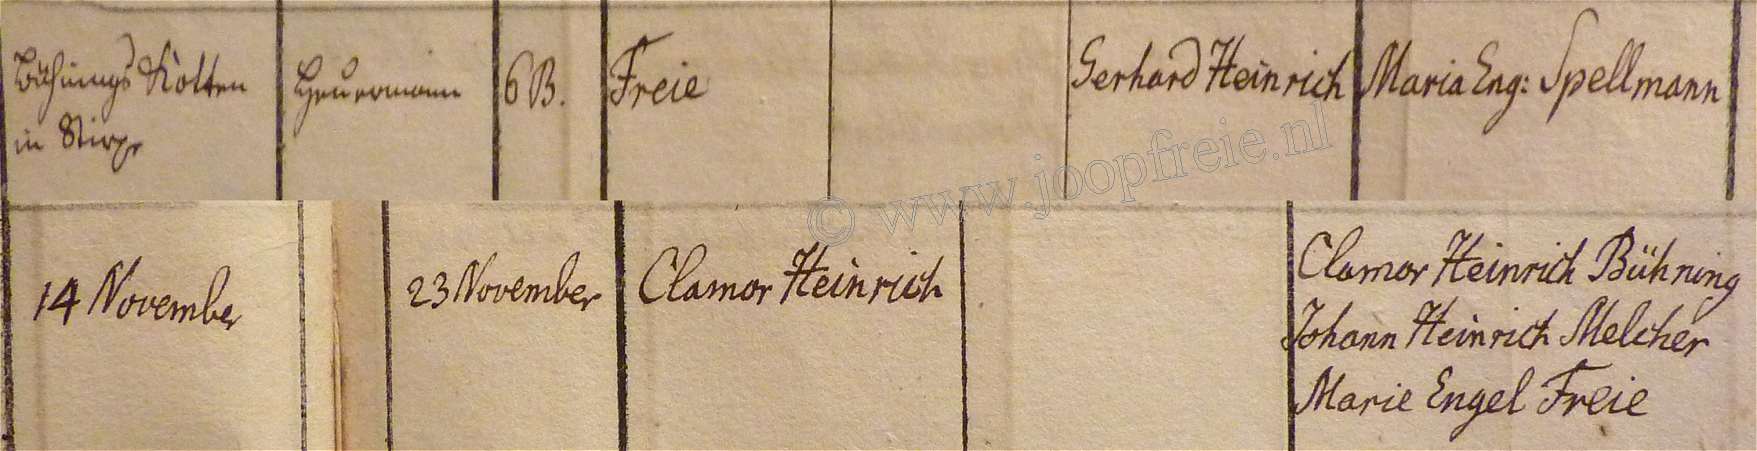 Bühnings Kotten Heuermann 6 B. Freie Gerhard Heinrich Maria Eng: Spellmann
in Stirpe
© www.joopfreie.nl
14 November 23 November Clamor Heinrich Clamor Heinrich Bühning
Johann Heinrich Melcher
Marie Engel Freie